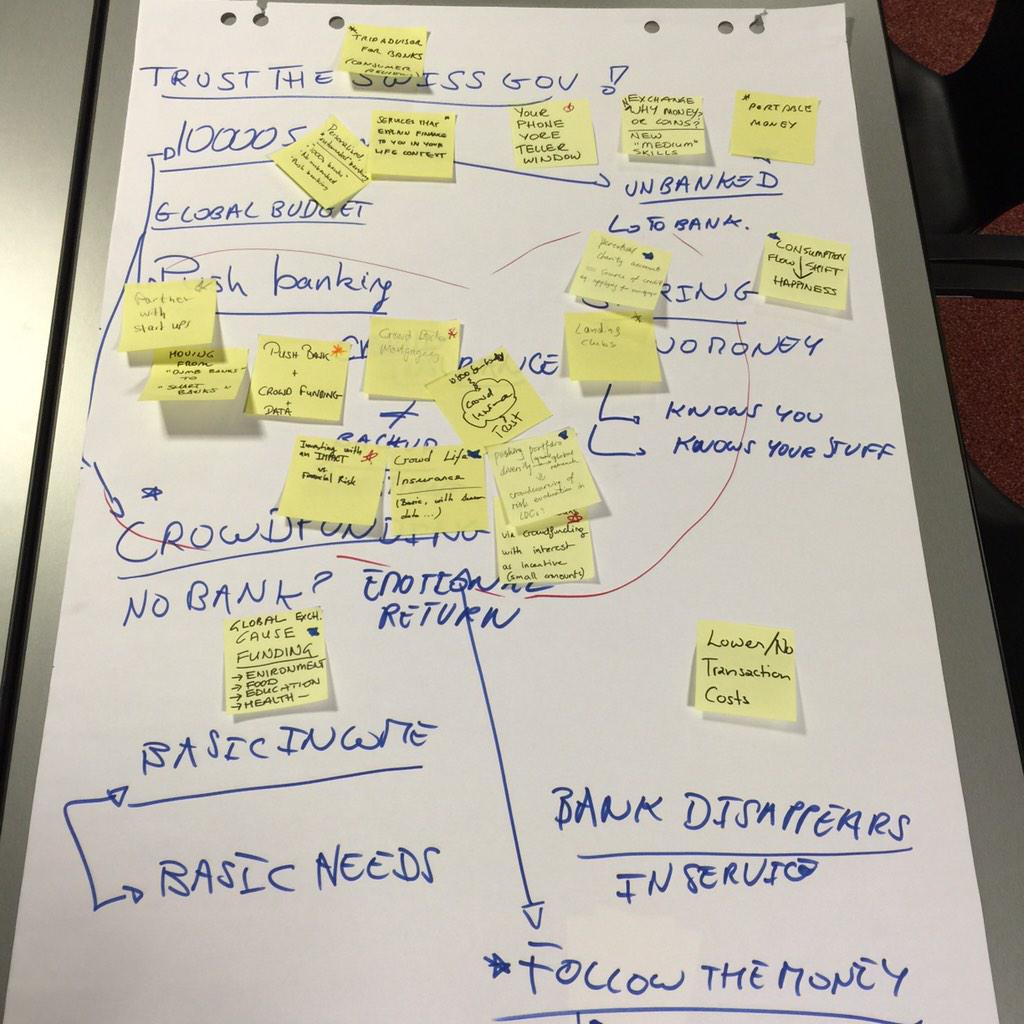 * TRIPADVISOR
FOR BANKS
CONSUMER
TRUST THE SWISS GOV !
10000 S
Personalised,
"Push banking"
SERVICES THAT
EXPLAIN FINANCE
TO YOU IN YOUR
LIFE CONTEXT
YOUR
PHONE
YORE
TELLER
WINDOW
EXCHANGE
WHY MONEY?
OR COINS?
NEW
"MEDIUM"
SKILLS
* PORTABLE
MONEY
UNBANKED
GLOBAL BUDGET
TO BANK.
Push banking
charity account
= source of credit
by applying for mortgage
CONSUMPTION
FLOW SHIFT
HAPPINESS
RING
Partner
with
start ups
MOVING
FROM
"DUMB BANKS"
TO
"SMART BANKS"
PUSH BANK
+
CROWD FUNDING
+
DATA
Mortgaging
Crowd
TRUST
clubs
NO MONEY
KNOWS YOU
KNOWS YOUR STUFF
Investing with
an IMPACT
vs
Financial Risk
Crowd Life
Insurance
(Basic, with
data ...)
pushing portfolio
crowdsourcing of
risk evaluation in
LDCs?
via crowdfunding
with interest
as incentive
(small amounts)
* CROWDFUNDING
NO BANK? EMOTIONAL
RETURN
GLOBAL EXCH.
CAUSE
FUNDING
→ ENIRONMENT
→ FOOD
→ EDUCATION
→ HEALTH —
Lower/No
Transaction
Costs
BASIC INCOME
BASIC NEEDS
BANK DISAPPEARS
IN SERVICE
* FOLLOW THE MONEY